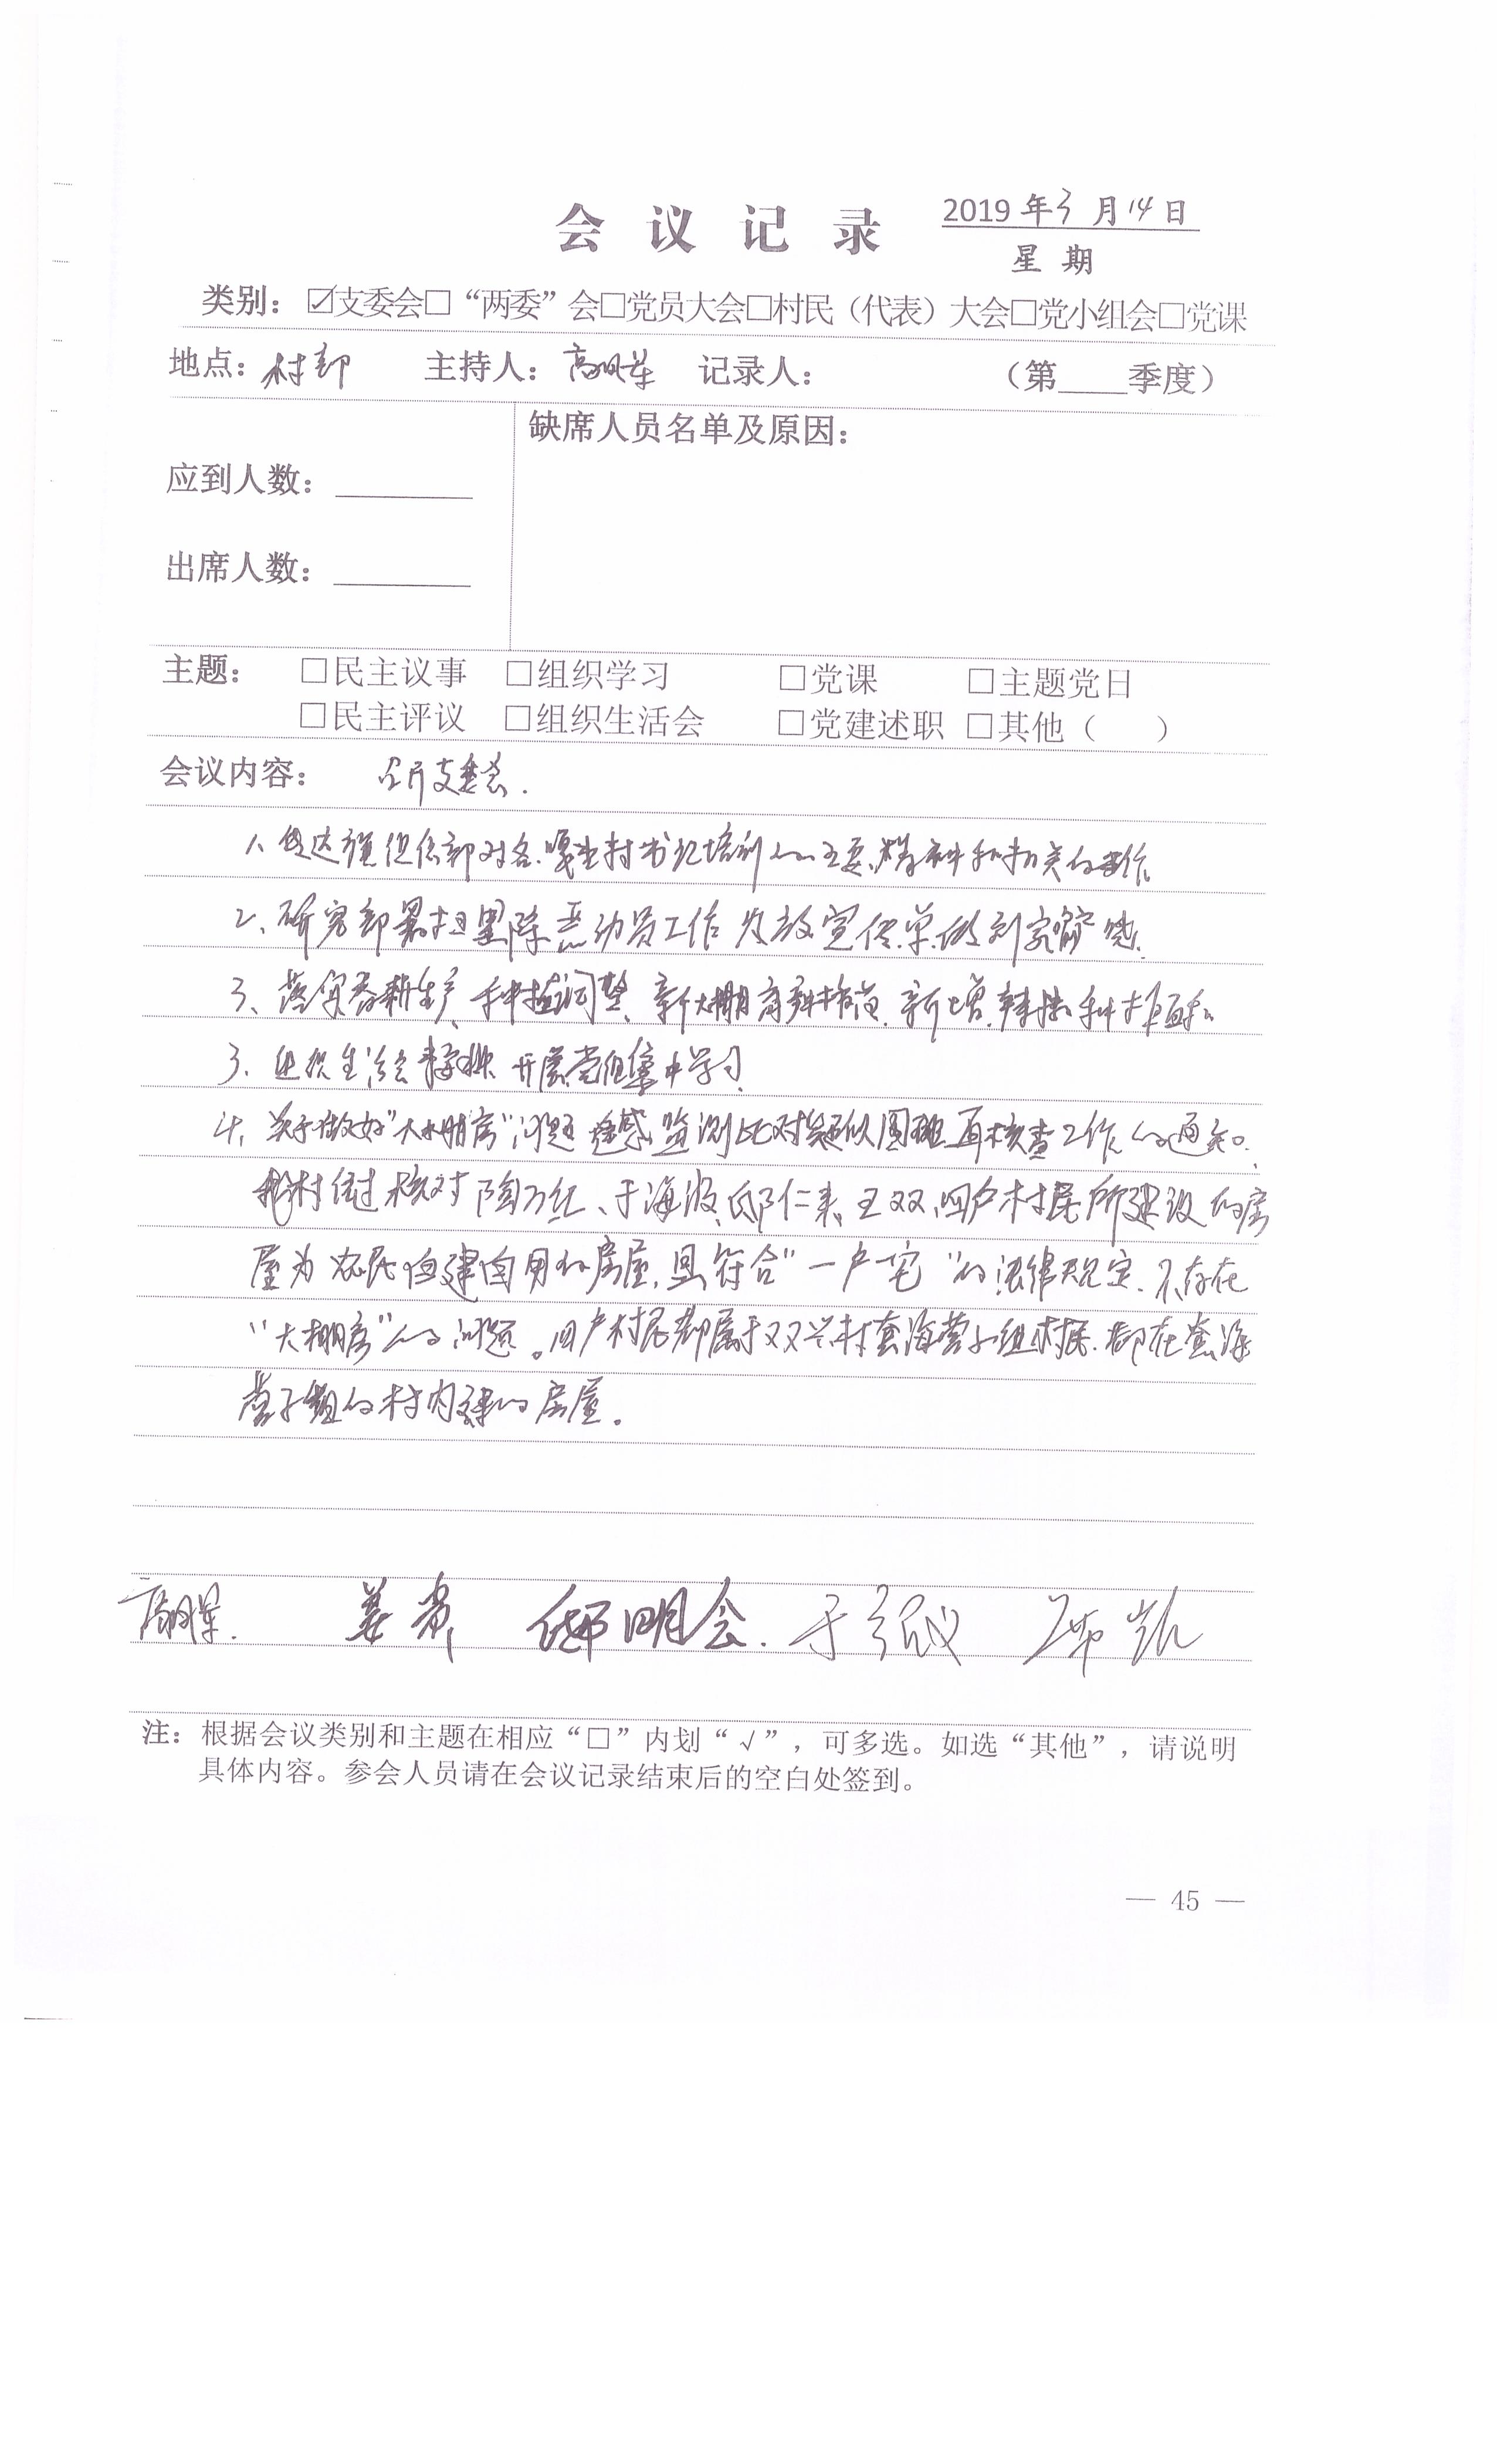 会议记录 2019年3月14日
星期
类别：☑支委会□“两委”会□党员大会□村民（代表）大会□党小组会□党课
地点：村部 主持人：高明军 记录人： （第____季度）
缺席人员名单及原因：
应到人数：________
出席人数：________
主题： □民主议事 □组织学习 □党课 □主题党日
□民主评议 □组织生活会 □党建述职 □其他（ ）
会议内容： 召开支委会.
1、传达 组织部对各嘎查村书记培训的主要精神和相关的
2、研究部署扫黑除恶动员工作 发放宣传单.做到家喻
3、落实春耕生产、种植调整、新大棚育 新增辣椒种植面积
3、组织生活会 开展党组集中学习
4、关于做好“大棚房”问题遥感监测比对疑似图斑再核查工作的通知.
我村经过核对 陶万红、于海波、邸仁来、王双、四户村民所建设的房
屋为农民自建自用的房屋,且符合“一户一宅”的法律规定.不存在
“大棚房”的问题。四户村民都属于双兴村套海营子组村民.都在套海
营子组的村内建的房屋。
高明军. 姜贵 邸明会. 于 凯
注：根据会议类别和主题在相应“□”内划“√”，可多选。如选“其他”，请说明
具体内容。参会人员请在会议记录结束后的空白处签到。
— 45 —